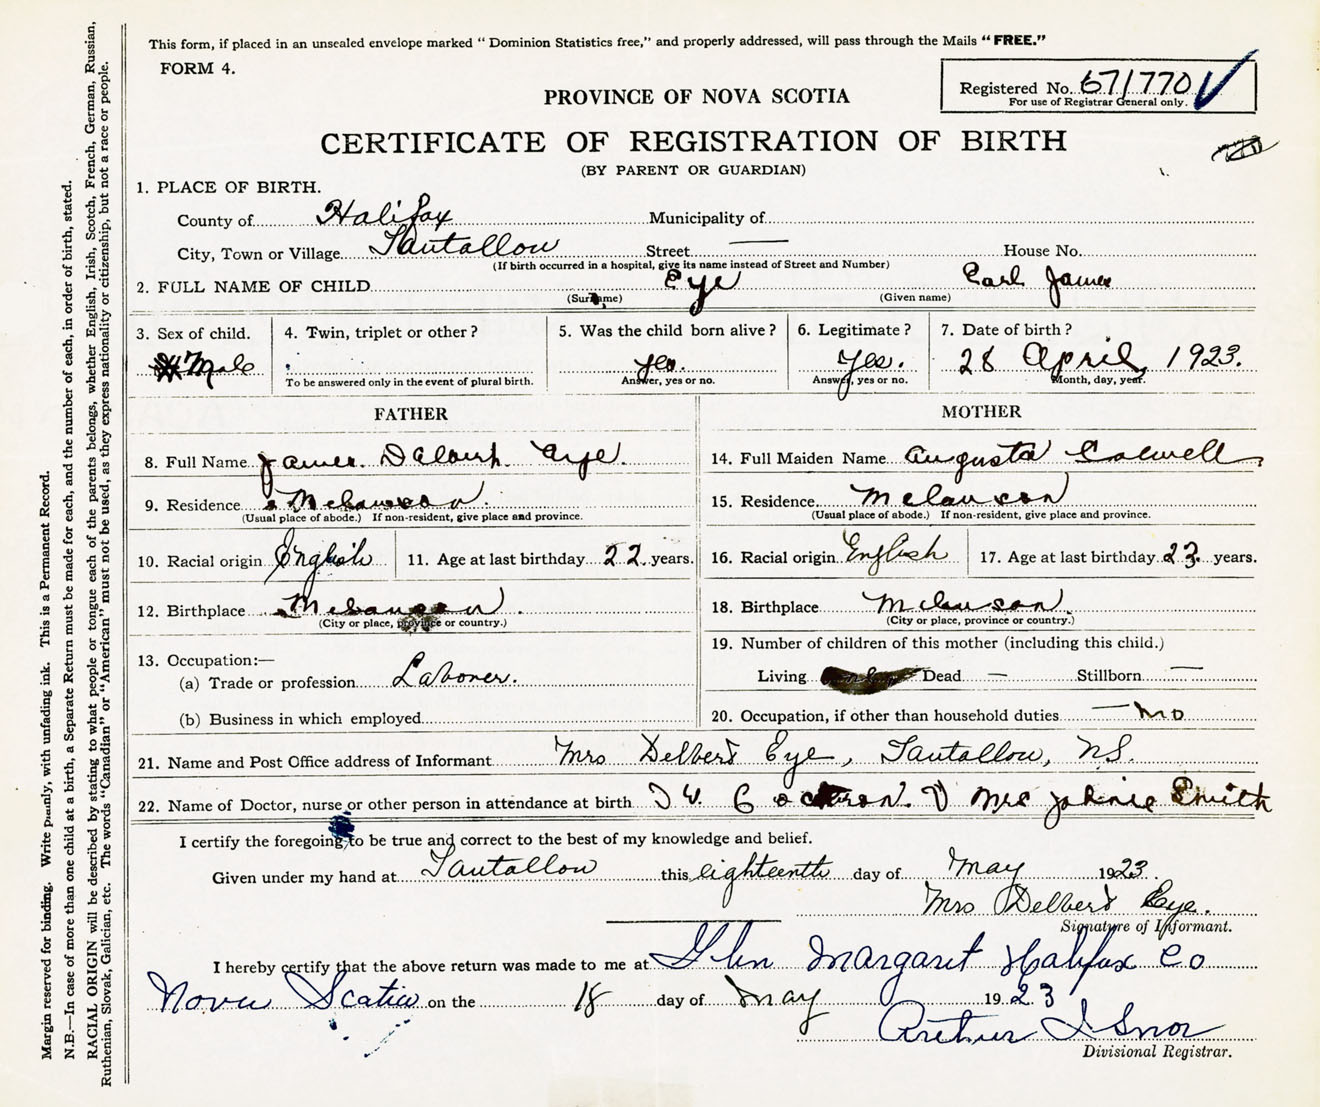 This form, if placed in an unsealed envelope marked “ Dominion Statistics free,” and properly addressed, will pass through the Mails “ FREE.”
FORM 4.
Registered No. 671770
For use of Registrar General only.
PROVINCE OF NOVA SCOTIA
CERTIFICATE OF REGISTRATION OF BIRTH
(BY PARENT OR GUARDIAN)
1. PLACE OF BIRTH.
County of Halifax Municipality of
City, Town or Village Tantallow Street — House No.
(If birth occurred in a hospital, give its name instead of Street and Number)
2. FULL NAME OF CHILD Eye Earl James
(Surname) (Given name)
3. Sex of child. 4. Twin, triplet or other ? 5. Was the child born alive ? 6. Legitimate ? 7. Date of birth ?
Male yes. Yes. 28 April, 1923.
To be answered only in the event of plural birth. Answer, yes or no. Answer, yes or no. Month, day, year.
FATHER MOTHER
8. Full Name James Eye. 14. Full Maiden Name Augusta
9. Residence 15. Residence
(Usual place of abode.) If non-resident, give place and province. (Usual place of abode.) If non-resident, give place and province.
10. Racial origin English 11. Age at last birthday 22 years. 16. Racial origin English 17. Age at last birthday 23 years.
12. Birthplace 18. Birthplace
(City or place, province or country.) (City or place, province or country.)
19. Number of children of this mother (including this child.)
13. Occupation:—
(a) Trade or profession Laborer. Living Dead — Stillborn —
(b) Business in which employed 20. Occupation, if other than household duties — no
21. Name and Post Office address of Informant Mrs Delbert Eye, Tantallow, N.S.
22. Name of Doctor, nurse or other person in attendance at birth Mrs Johnie Smith
I certify the foregoing to be true and correct to the best of my knowledge and belief.
Given under my hand at Tantallow this eighteenth day of May 1923.
Mrs Delberd Eye.
Signature of Informant.
I hereby certify that the above return was made to me at Glen Margaret Halifax Co
Nova Scotia on the 18 day of May 1923
Arthur I Snor
Divisional Registrar.
Margin reserved for binding. Write plainly, with unfading ink. This is a Permanent Record.
N.B.—In case of more than one child at a birth, a Separate Return must be made for each, and the number of each, in order of birth, stated.
RACIAL ORIGIN will be described by stating to what people or tongue each of the parents belongs, whether English, Irish, Scotch, French, German, Russian,
Ruthenian, Slovak, Galician, etc. The words “Canadian” or “American” must not be used, as they express nationality or citizenship, but not a race or people.